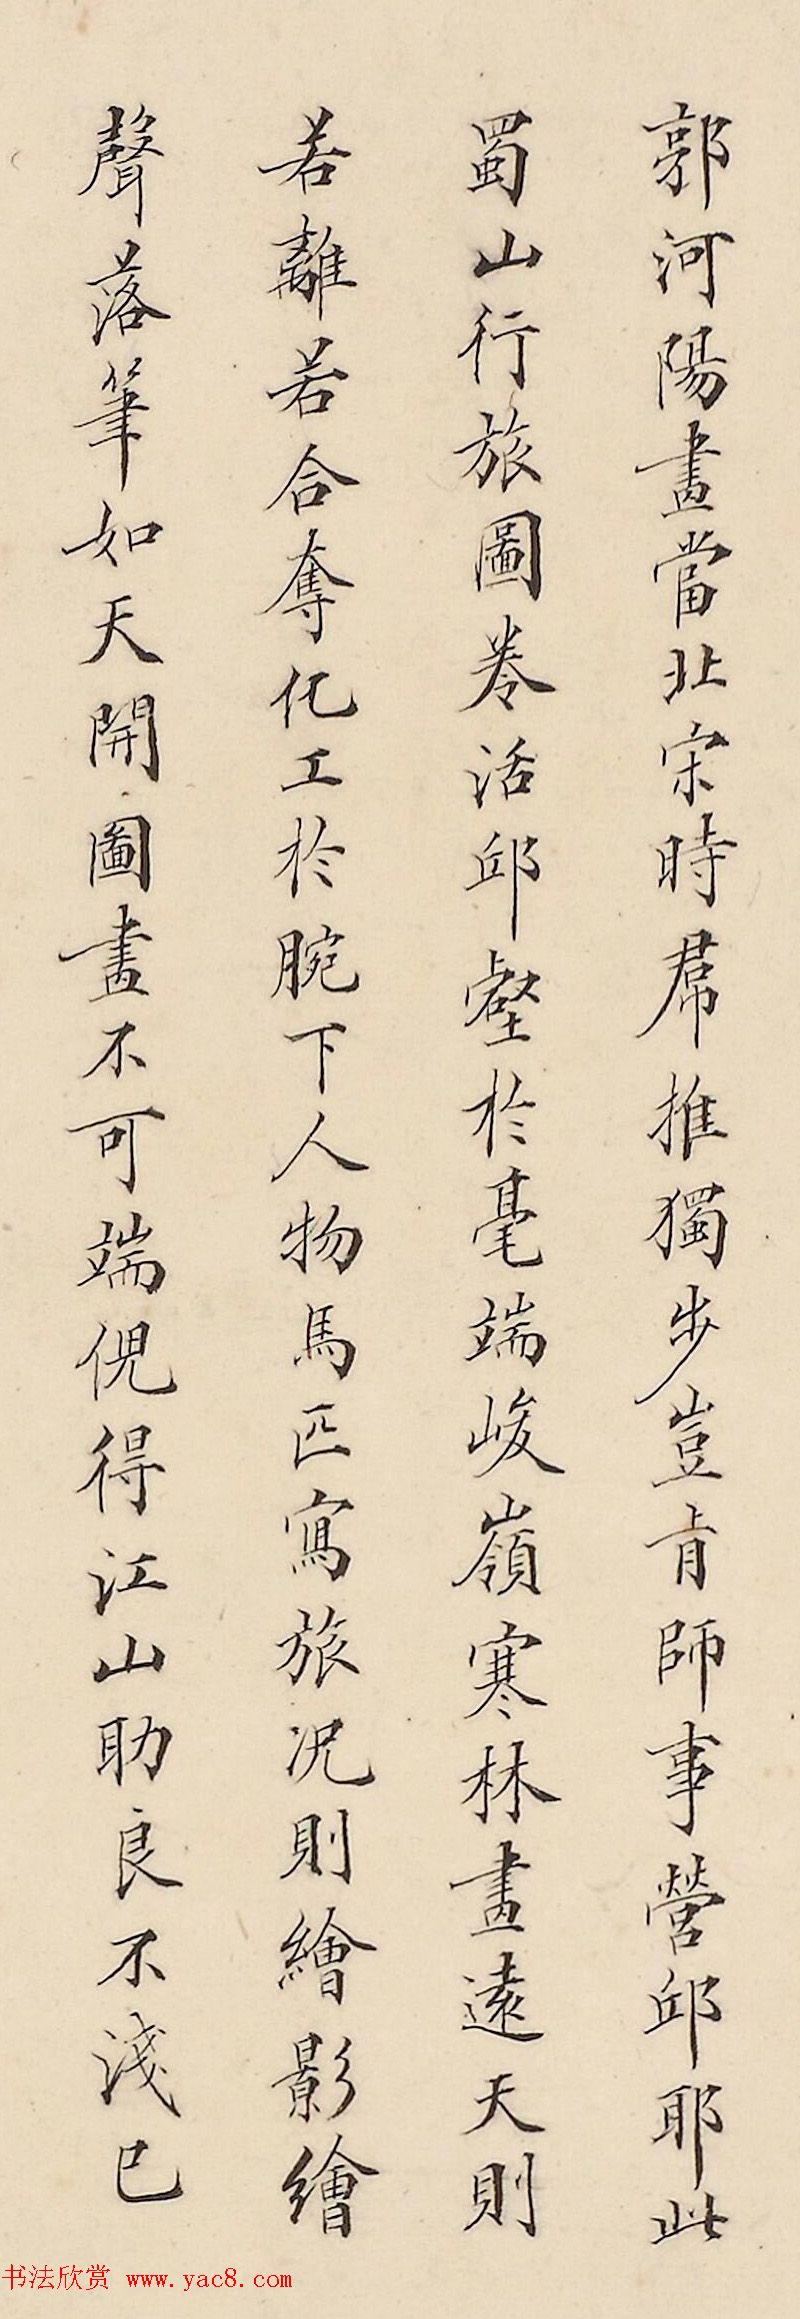 郭河陽畫當北宋時羣推獨步豈肯師事營邱耶此
蜀山行旅圖卷活邱壑於毫端峻嶺寒林畫遠天則
若離若合奪化工於腕下人物馬匹寫旅況則繪影繪
聲落筆如天開圖畫不可端倪得江山助良不淺已
书法欣赏 www.yac8.com